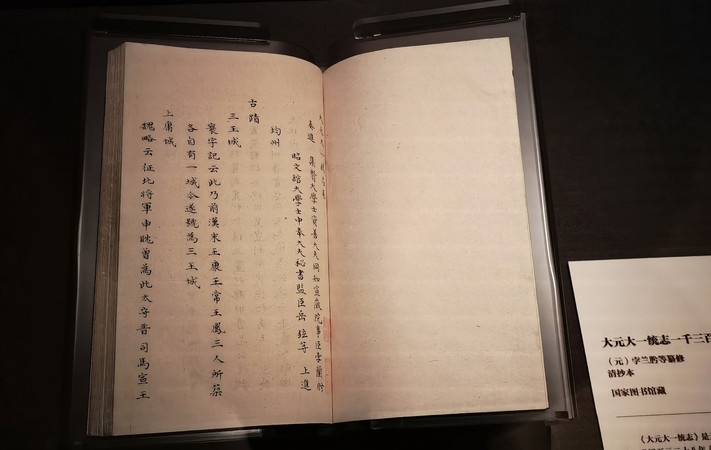 集賢大學士資善大夫同知宣徽院事臣孛蘭肹
昭文館大學士中奉大夫秘書監臣岳鉉等 上進
均州
古蹟
三王城
寰宇記云此乃前漢末王康王常王鳳三人所築
各自有一城今遂號為三王城
上庸城
魏略云征北將軍申耽曾為此太守晉司馬宣王
大元大一统志一千三百
（元）孛兰肹等纂修
清抄本
国家图书馆藏
《大元大一统志》是